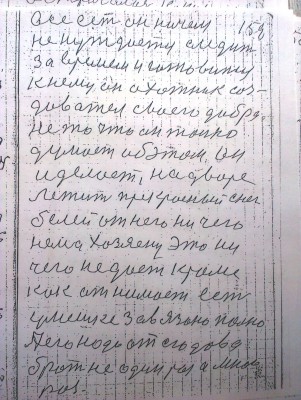 все сет он ничем 159
не нуждается следит
за временем и готовится
к нему он охотник соз-
дователь своего добра,
не то что он только
думает об этом, он
и делает, на дворе
летит прекрасный снег
белей от него ни чего
нема хозяену это ни
чего не дает кроме
как отнимает ест
завязано полно
Негонода от сгодовд
брот не один раз а много
раз